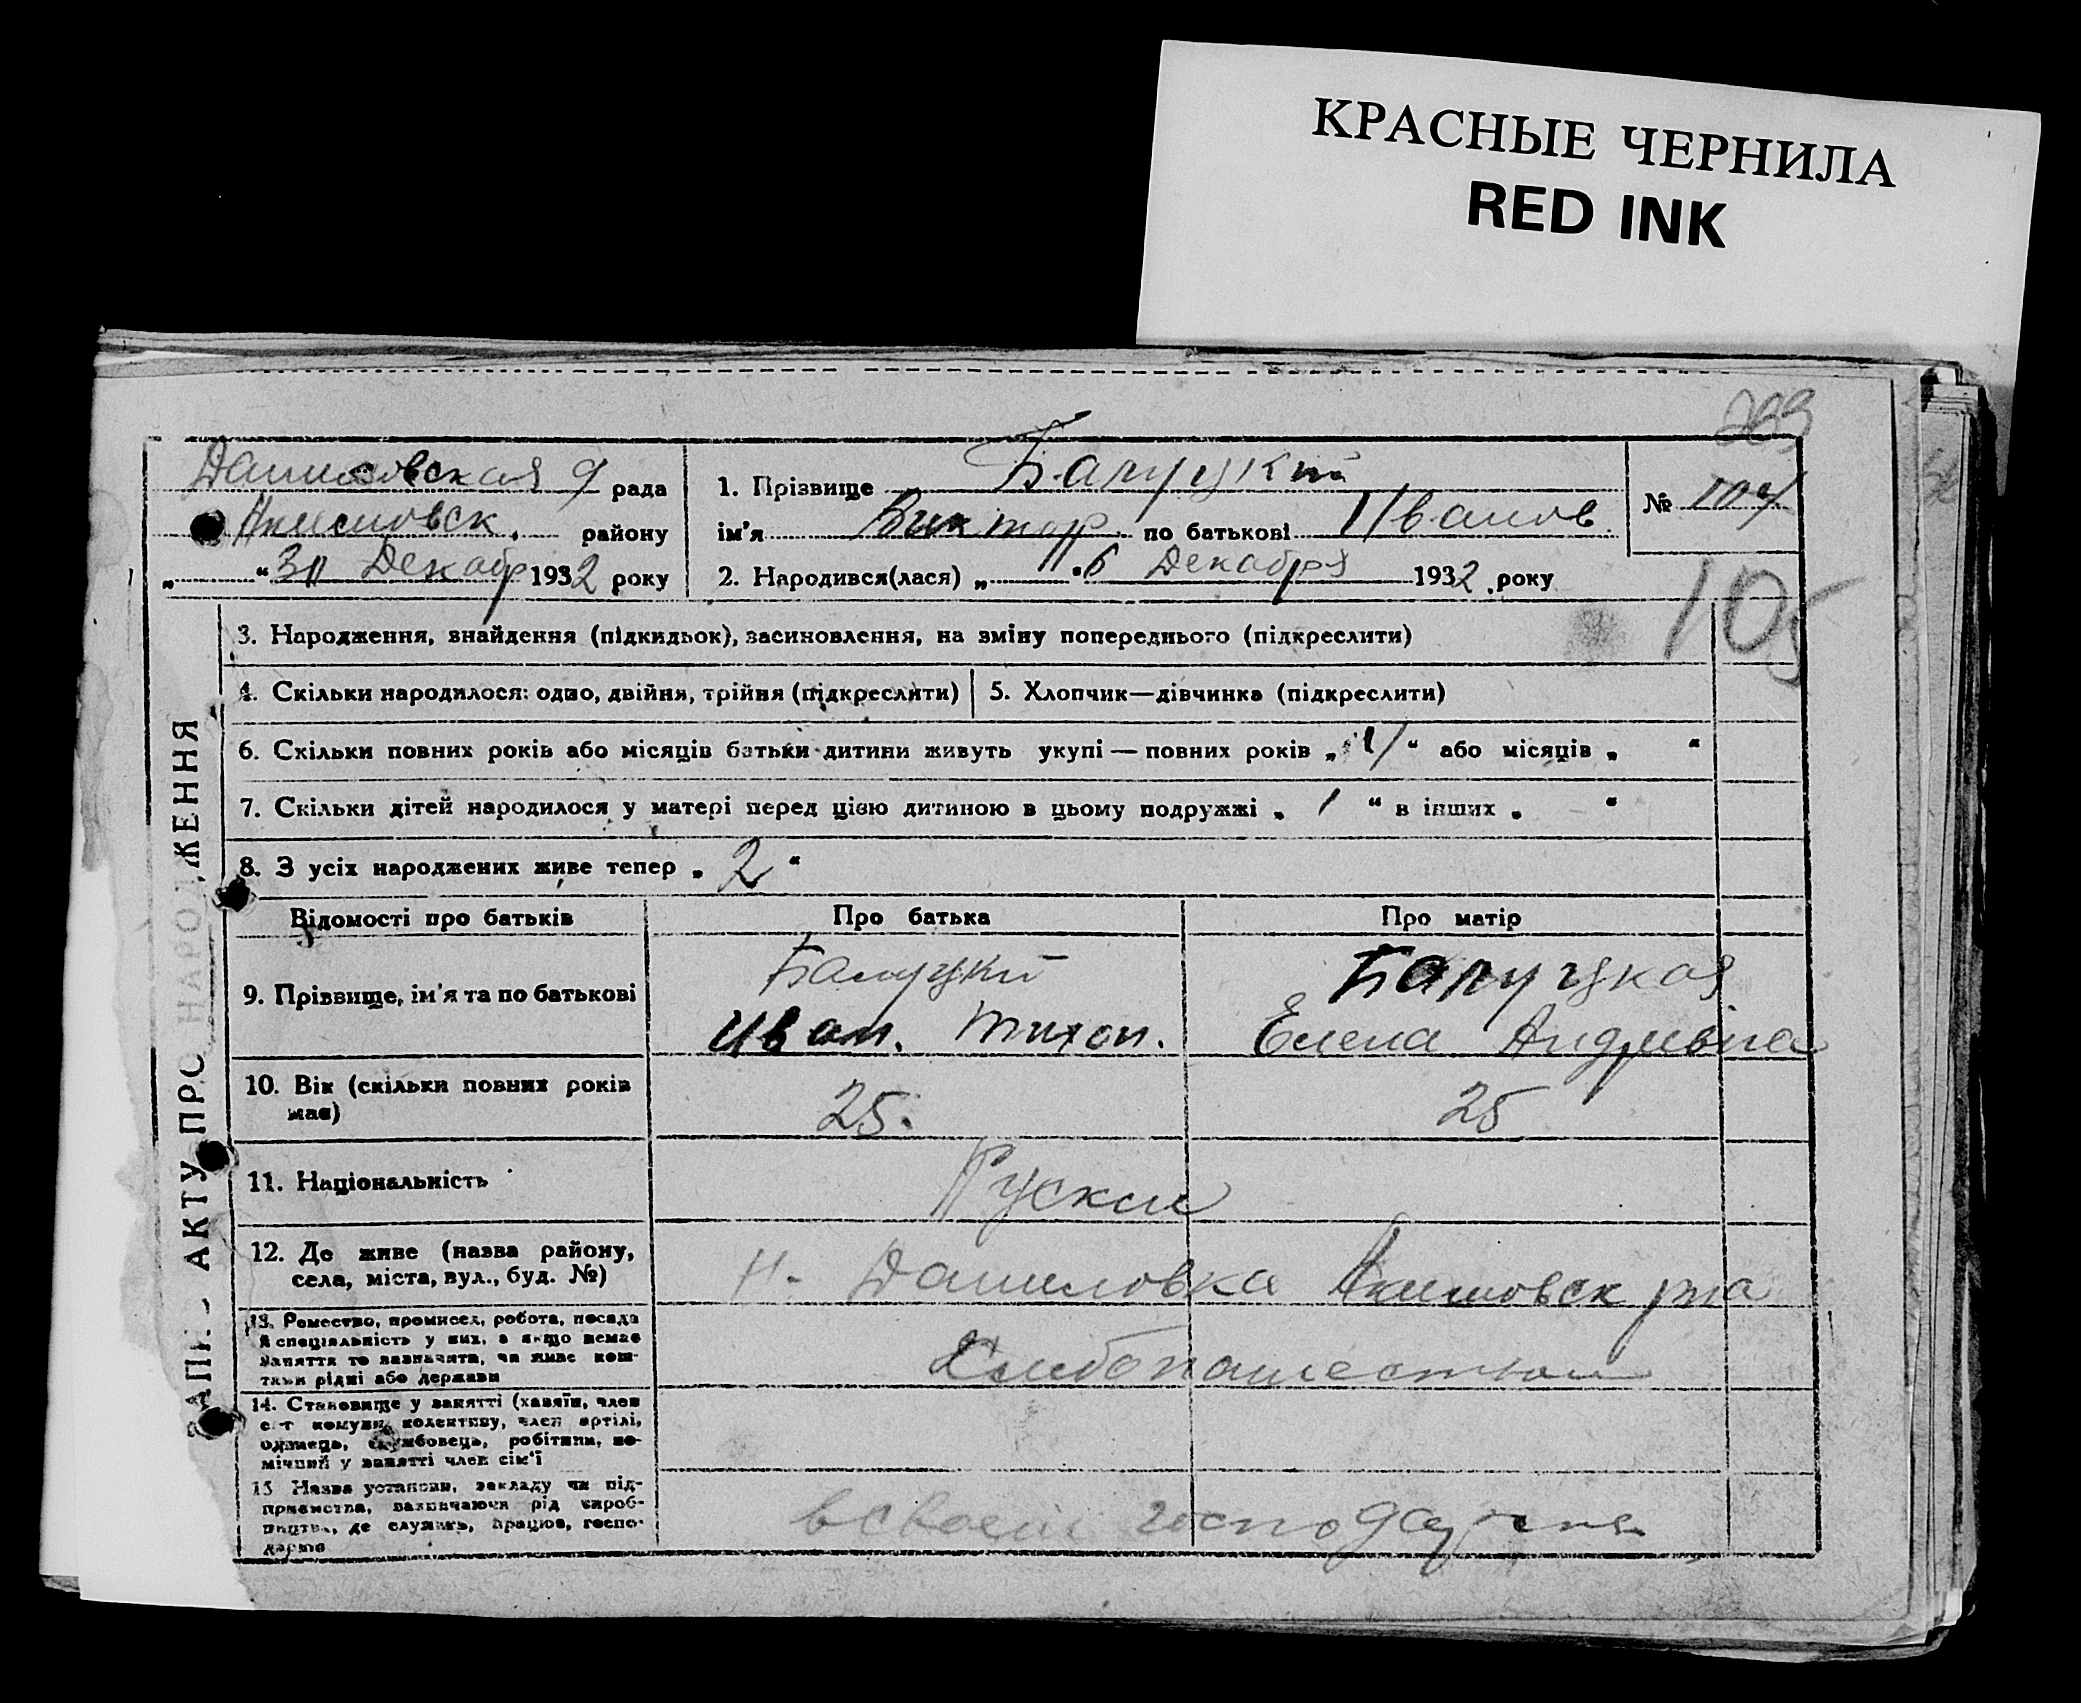 КРАСНЫЕ ЧЕРНИЛА
RED INK
Даниловская рада
Акимовск. району
„ “ 30 Декабр 1932 року
1. Прізвище Балуцкий
ім'я Виктор по батькові Иванов
2. Народився(лася) „ “ 6 Декабря 1932 року
№ 104
105
3. Народження, знайдення (підкидьок), засиновлення, на зміну попереднього (підкреслити)
4. Скільки народилося: одно, двійня, трійня (підкреслити) 5. Хлопчик—дівчинка (підкреслити)
6. Скільки повних років або місяців батьки дитини живуть укупі — повних років „ 4 “ або місяців „ “
7. Скільки дітей народилося у матері перед цією дитиною в цьому подружжі „ 1 “ в інших „ - “
8. З усіх народжених живе тепер „ 2 “
Відомості про батьків Про батька Про матір
9. Прізвище, ім'я та по батькові
Балуцкий
Иван. Тихон.
Балуцкая
Елена Андривна
10. Вік (скільки повних років має)
25. 25
11. Національність
Руские
12. Де живе (назва району,
села, міста, вул., буд. №)
Н. Даниловка Акимовск р-на
13. Ремество, промисел, робота, посада
й спеціяльність у них, а якщо немає
заняття то зазначити, чи живе кош-
тами рідні або держави
Хлибопашеством
14. Становище у занятті (хазяїн, член
с.-г комуни, колективу, член артілі,
одинець, службовець, робітник, по-
мічний у занятті член сім'ї
15 Назва установи, закладу чи під-
приємства, зазначаючи рід вироб-
ництва, де служить, працює, госпо-
дарює
в своем
ЗАПИС АКТУ ПРО НАРОДЖЕННЯ